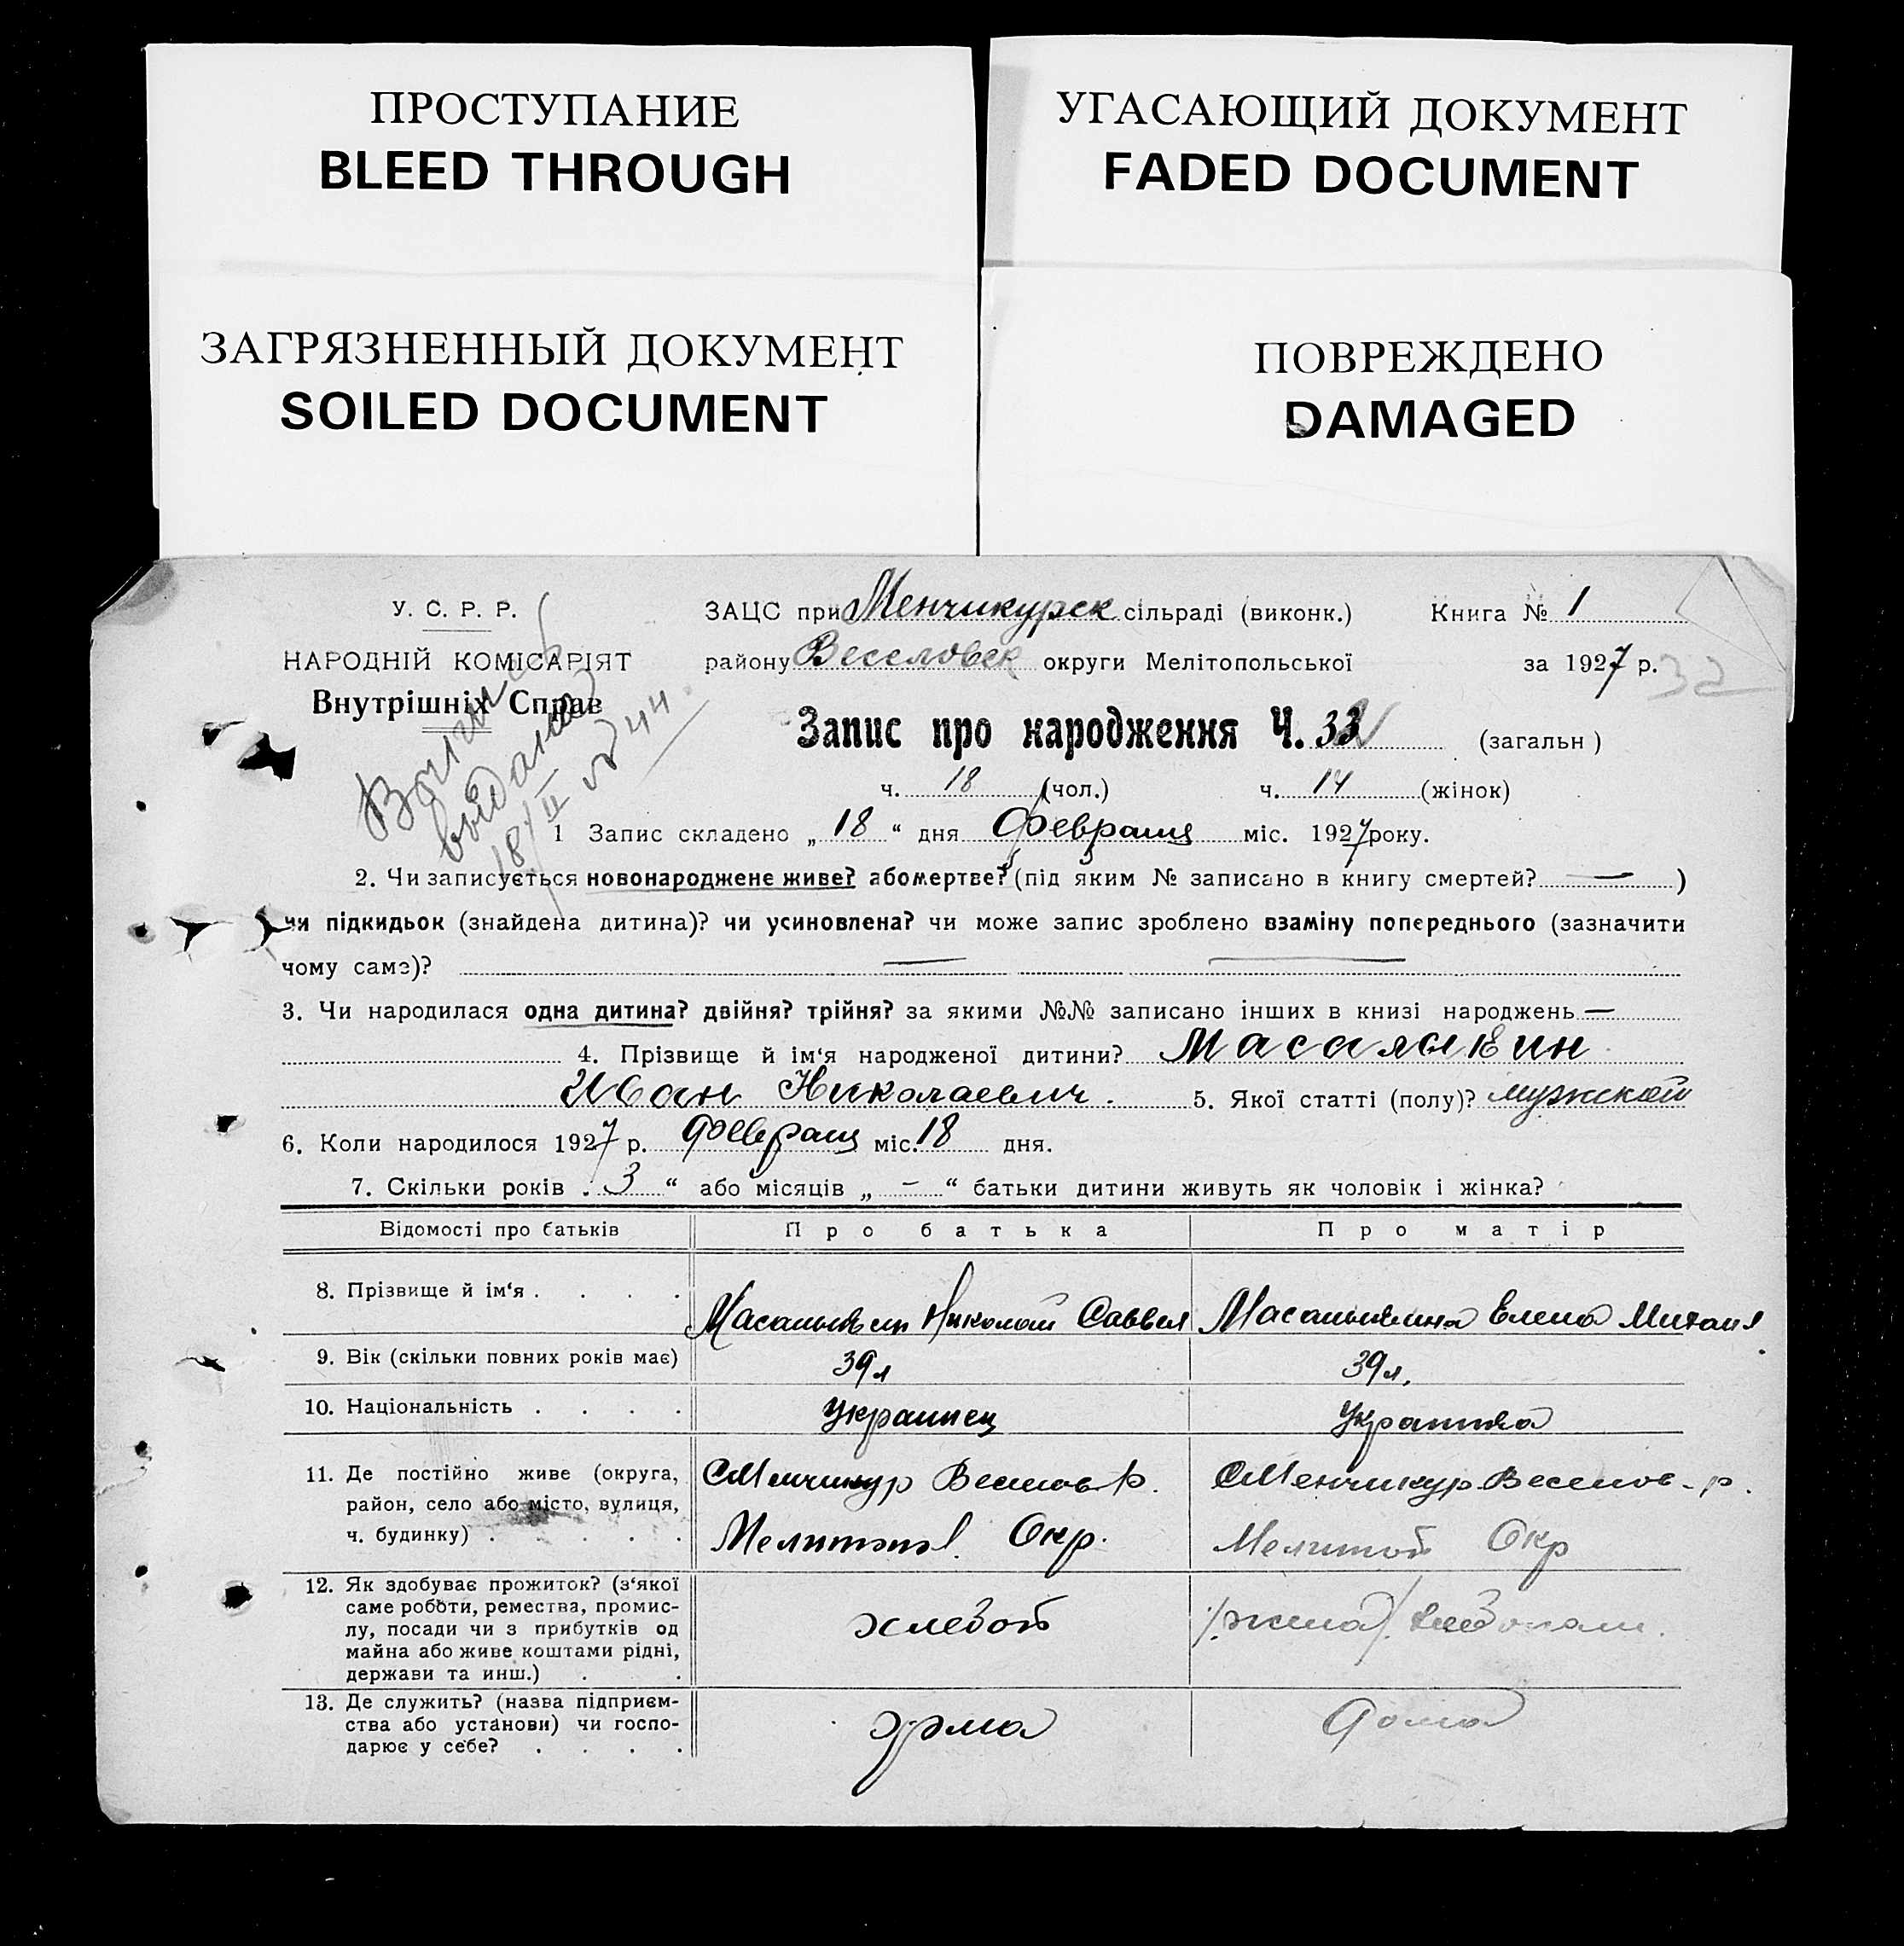 ПРОСТУПАНИЕ
BLEED THROUGH
УГАСАЮЩИЙ ДОКУМЕНТ
FADED DOCUMENT
ЗАГРЯЗНЕННЫЙ ДОКУМЕНТ
SOILED DOCUMENT
ПОВРЕЖДЕНО
DAMAGED
У. С. Р. Р.
НАРОДНІЙ КОМІСАРІЯТ
Внутрішніх Справ
выдана
ЗАЦС при Менчикурск сільраді (виконк.) Книга № 1
району Веселовск округи Мелітопольської за 1927 р. 32
Запис про народження Ч. (загальн)
ч. 18 (чол.) ч. 14 (жінок)
1 Запис складено „ 18 “ дня Февраля міс. 1927 року.
2. Чи записується новонароджене живе? або мертве? (під яким № записано в книгу смертей? — )
чи підкидьок (знайдена дитина)? чи усиновлена? чи може запис зроблено взаміну попереднього (зазначити
чому саме)? — —
3. Чи народилася одна дитина? двійня? трійня? за якими №№ записано інших в книзі народжень —
4. Прізвище й ім‘я народженої дитини? Масалыкин
Иван Николаевич. 5. Якої статті (полу)? мужской
6. Коли народилося 1927 р. Февраля міс. 18 дня.
7. Скільки років „ 3 “ або місяців „ – “ батьки дитини живуть як чоловік і жінка?
Відомості про батьків Про батька Про матір
8. Прізвище й ім‘я . . . . Масалыкин Николай Саввел Масалыкина Елена Михаил
9. Вік (скільки повних років має) 39 л 39 л.
10. Національність . . . . Украинец Украинка
11. Де постійно живе (округа,
район, село або місто, вулиця,
ч. будинку) . . . . .
С Менчикур Веселов р.
Мелитоп. Окр.
С Менчикур Веселов - р.
Мелитоп Окр
12. Як здобуває прожиток? (з‘якої
саме роботи, ремества, промис-
лу, посади чи з прибутків од
майна або живе коштами рідні,
держави та инш.) . .
хлебоп
13. Де служить? (назва підприєм-
ства або установи) чи госпо-
дарює у себе? . . . .
дома
дома